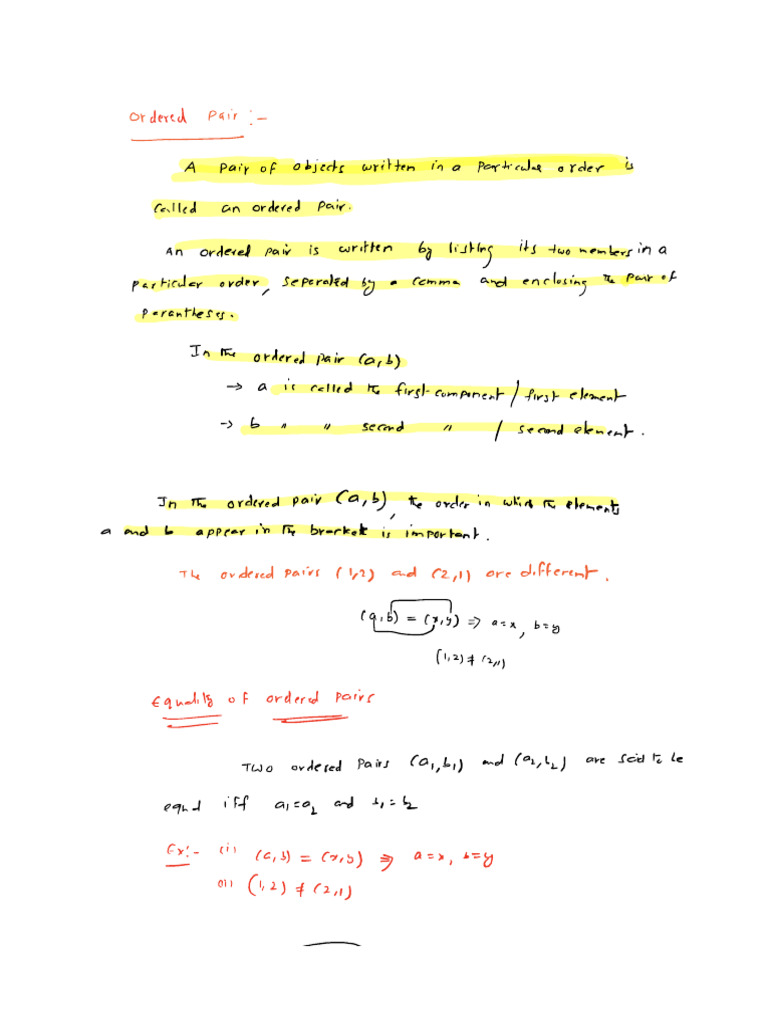 Ordered Pair :-
A pair of objects written in a particular order is
called an ordered pair.
An ordered pair is written by listing its two members in a
particular order, separated by a comma and enclosing the pair of
parantheses.
In the ordered pair (a,b)
→ a is called the first-component / first element
→ b " " second " / second element.
In the ordered pair (a,b), the order in which the elements
a and b appear in the bracket is important.
The ordered pairs (1,2) and (2,1) are different.
(a,b) = (x,y) ⇒ a=x, b=y
(1,2) ≠ (2,1)
Equality of ordered pairs
Two ordered pairs (a₁,b₁) and (a₂,b₂) are said to be
equal iff a₁=a₂ and b₁=b₂
Ex:- (i) (a,b) = (x,y) ⇒ a=x, b=y
(ii) (1,2) ≠ (2,1)